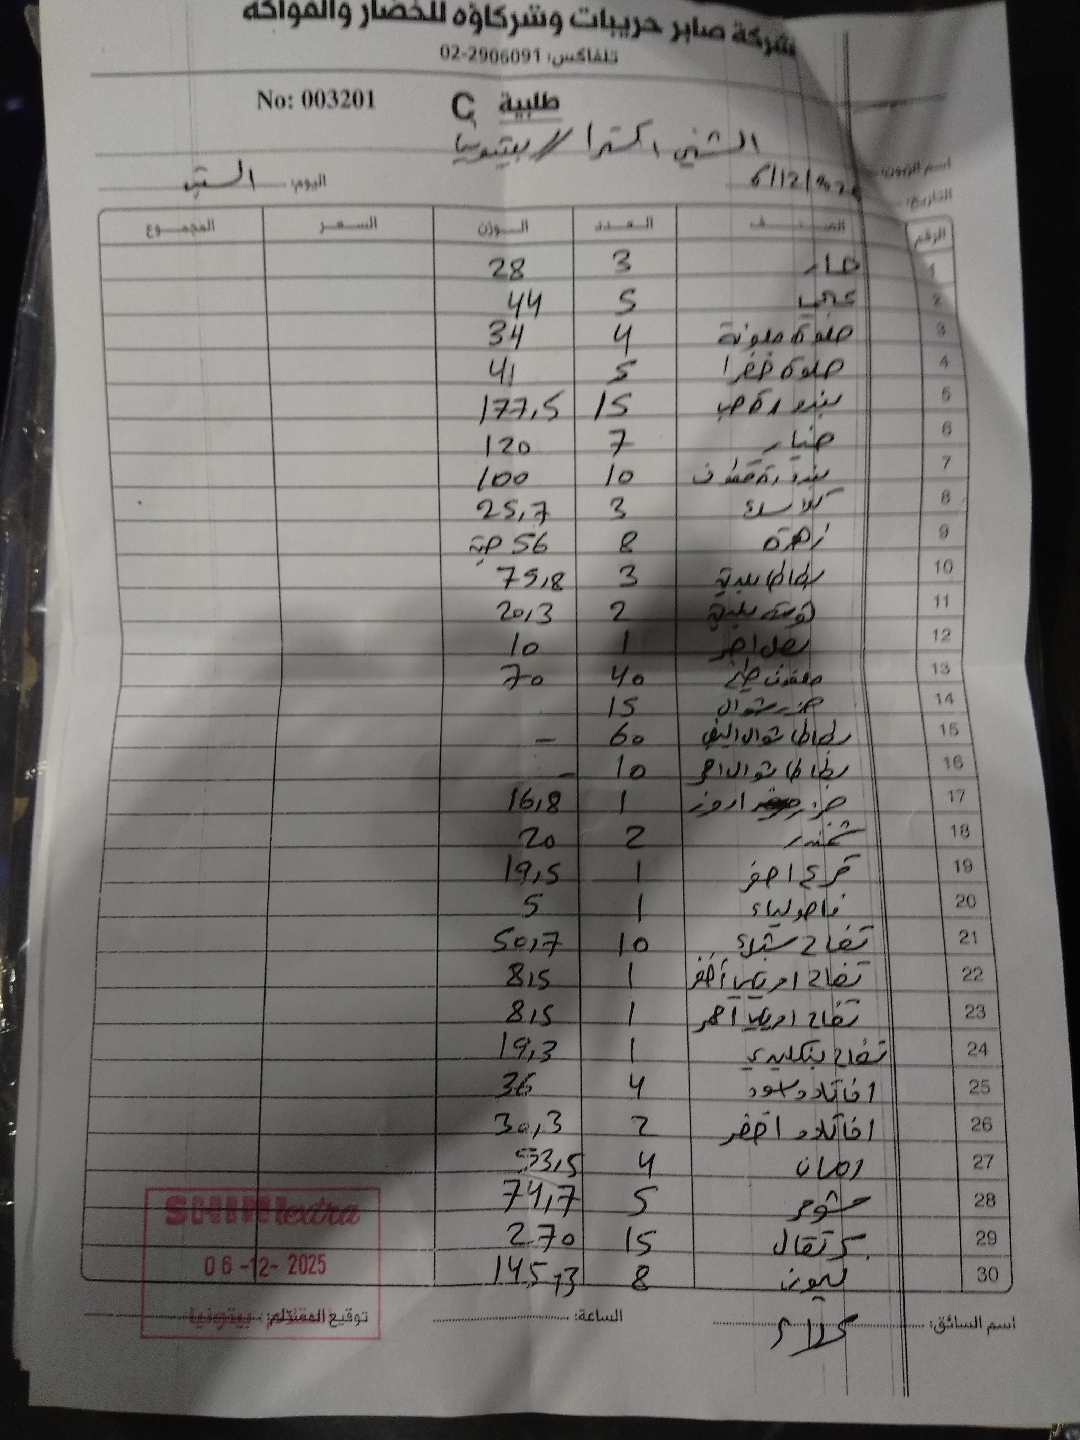 شركة صابر حريبات وشركاؤه للخضار والفواكه
تلفاكس: 02-2906091
No: 003201 طلبية C
اسم الزبون: الشني اكسترا // بيتونيا
التاريخ: 6/12/2025 اليوم: السبت
الرقم الصنف العدد الوزن السعر المجموع
1 حار 3 28
2 5 44
3 حلوة ملونة 4 34
4 حلوة خضرا 5 41
5 بندورة حب 15 177,5
6 خيار 7 120
7 بندورة قطوف 10 100
8 3 25,7
9 زهرة 8 56 حبة
10 بطاطا بلدية 3 75,8
11 بلدية 2 20,3
12 بصل اخضر 1 10
13 ملفوف طبخ 40 70
14 جزر شوال 15
15 بطاطا شوال ابيض 60 -
16 بطاطا شوال احمر 10 -
17 جزر 1 16,8
18 شمندر 2 20
19 قرع اصفر 1 19,5
20 فاصولياء 1 5
21 تفاح 10 50,7
22 تفاح اخضر 1 8,5
23 تفاح احمر 1 8,5
24 تفاح 1 19,3
25 افاكادو اسود 4 36
26 افاكادو اخضر 2 30,3
27 رمان 4 53,5
28 5 74,7
29 برتقال 15 270
30 ليمون 8 145,3
اسم السائق: علاء الساعة: توقيع المستلم:
SHINI extra
06-12-2025
بيتونيا